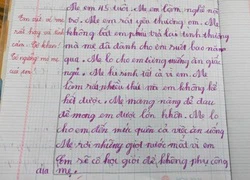 Mẹ em 45 tuổi. Mẹ em làm nghề nội
trợ. Em rất yêu thương em. Mẹ
không bắt em phải trả lại tình thương
mà mẹ đã dành cho em suốt bao năm
qua. Mẹ lo cho em từng miếng ăn, giấc
ngủ. Mẹ hi sinh tất cả vì em. Mẹ
làm rất nhiều thứ nói em không kể
hết được. Mẹ mang nặng đẻ đau
để mong em được lớn khôn. Mẹ lo
cho em đến mức quên cả việc ăn uống.
Mẹ rơi những giọt nước mắt vì em
Em sẽ cố học giỏi để không phụ công
mẹ.